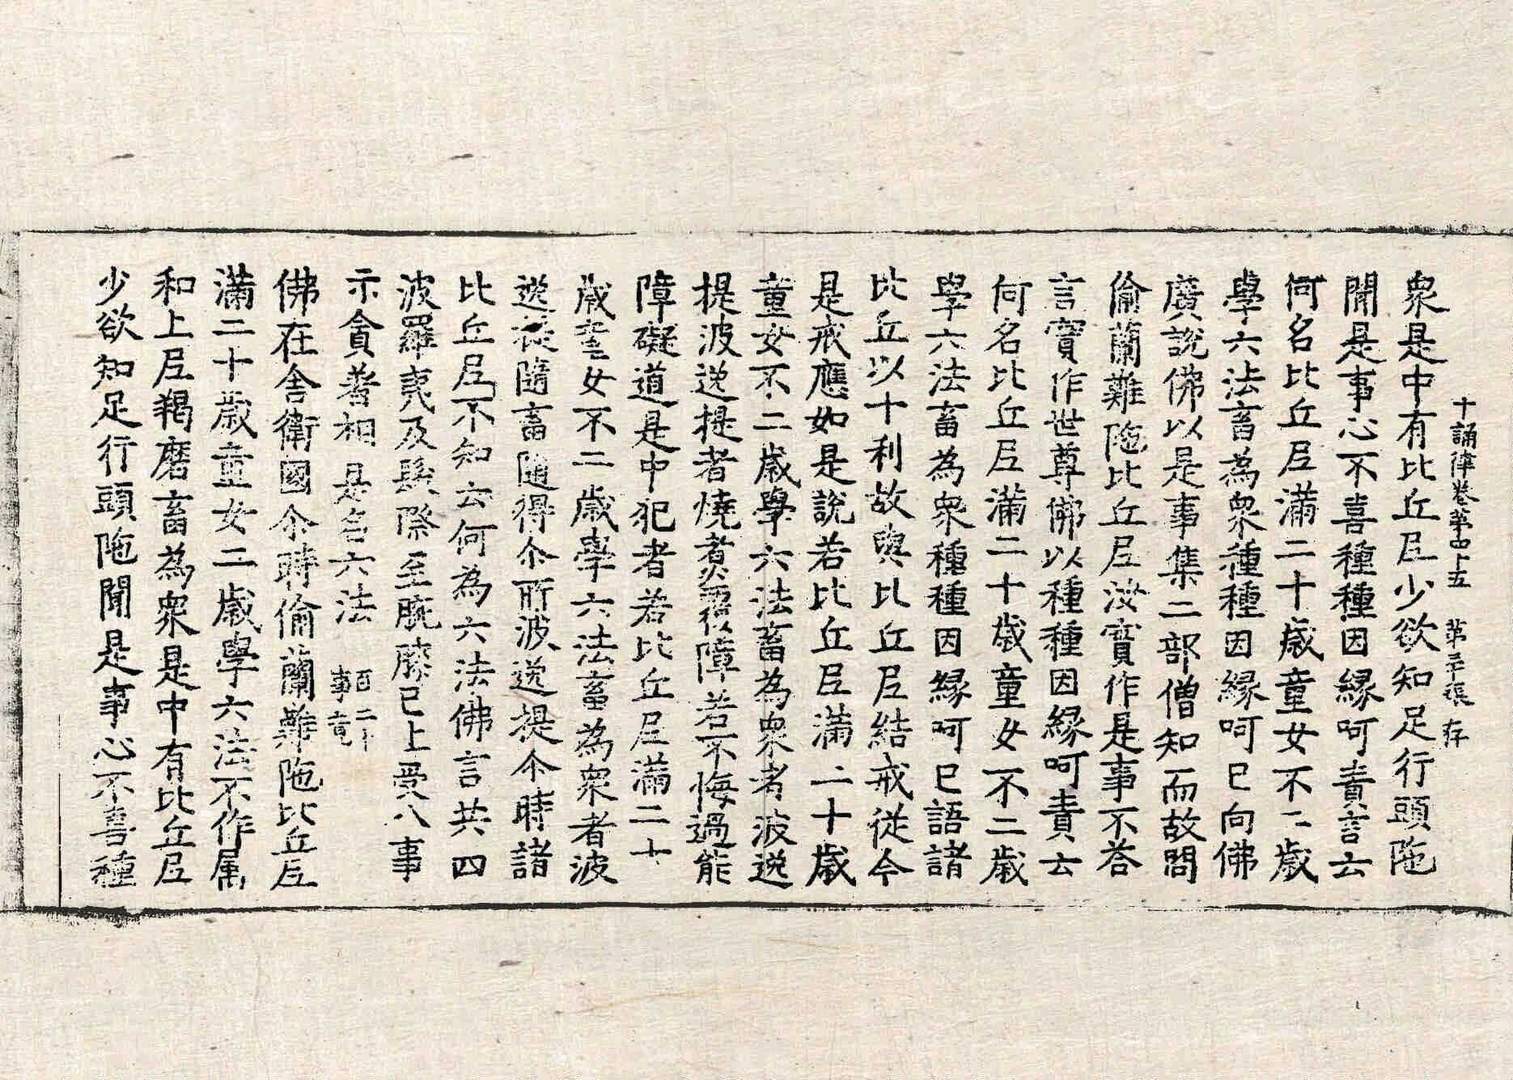 十誦律卷第四十五 第三張 存
衆是中有比丘尼少欲知足行頭陁
聞是事心不喜種種因縁呵責言云
何名比丘尼滿二十歲童女不二歲
學六法畜為衆種種因縁呵已向佛
廣說佛以是事集二部僧知而故問
偷蘭難陁比丘尼汝實作是事不荅
言實作世尊佛以種種因縁呵責云
何名比丘尼滿二十歲童女不二歲
學六法畜為衆種種因縁呵已語諸
比丘以十利故與比丘尼結戒從今
是戒應如是說若比丘尼滿二十歲
童女不二歲學六法畜為衆者波逸
提波逸提者燒煑覆障若不悔過能
障礙道是中犯者若比丘尼滿二十
歲童女不二歲學六法畜為衆者波
逸提隨畜隨得尒所波逸提尒時諸
比丘尼不知云何為六法佛言共四
波羅夷及髮際至腕膝已上受八事
示貪著相是名六法 百二十事竟
佛在舍衛國尒時偷蘭難陁比丘尼
滿二十歲童女二歲學六法不作属
和上尼羯磨畜為衆是中有比丘尼
少欲知足行頭陁聞是事心不喜種